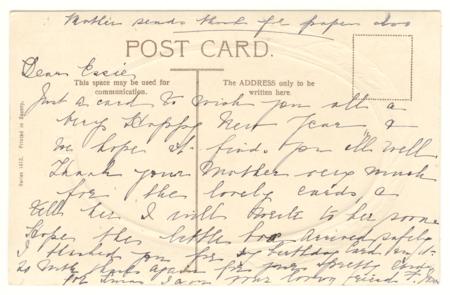 Mother sends thank for paper also
POST CARD.
Dear Essie
This space may be used for
communication.
The ADDRESS only to be
written here.
Just a card to wish you all a
very Happy New Year, &
we hope it finds you all well
Thank your Mother very much
for the lovely cards, &
tell her I will write to her soon
Hope the little box arrived safely
I thanked you for my birthday card
thanks again for your pretty card
for Xmas I am your loving friend
Printed in Saxony.